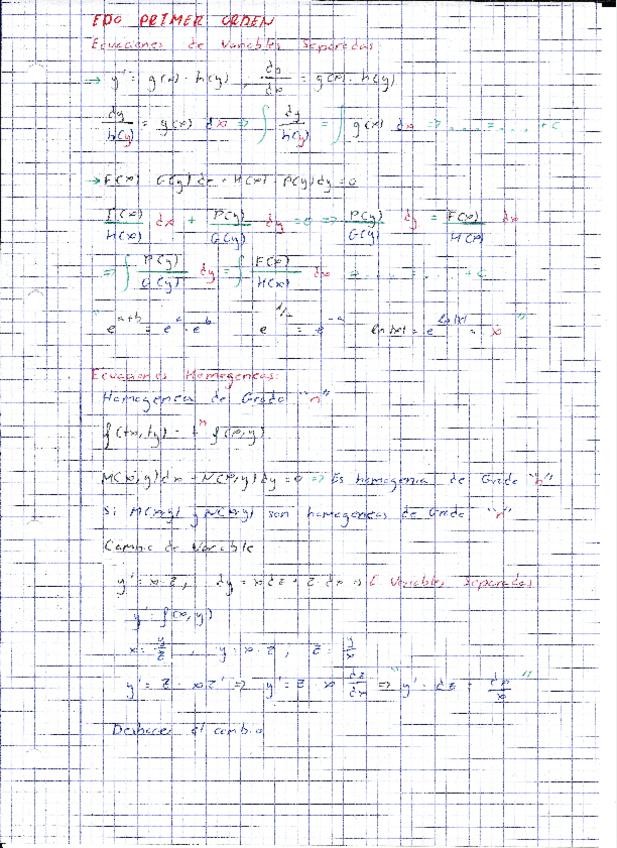 EDO PRIMER ORDEN
Ecuaciones de Variables Separadas
→ y' = g(x) · h(y) , dy/dx = g(x) · h(y)
dy/h(y) = g(x) dx ⇒ ∫ dy/h(y) = ∫ g(x) dx ⇒ .... = .... + c
→ F(x) · G(y) dx + H(x) · P(y) dy = 0
F(x)/H(x) dx + P(y)/G(y) dy = 0 ⇒ P(y)/G(y) dy = F(x)/H(x) dx
⇒ ∫ P(y)/G(y) dy = ∫ F(x)/H(x) dx ⇒ .... = .... + c
" e^(a+b) = e^a · e^b = e^-a ln|x| = e^(ln|x|) = x "
Ecuaciones Homogeneas:
Homogenea de Grado "n"
f(tx, ty) = t^n f(x, y)
M(x,y) dx + N(x,y) dy = 0 ⇒ Es homogenea de Grado "n"
Si M(x,y) y N(x,y) son homogeneas de Grado "n"
Cambio de Variable
y = x·z , dy = x dz + z dx ⇒ E Variables Separadas
y' = f(x, y)
x = y/z , y = x·z , z = y/x
y' = z + xz' ⇒ y' = z x dz/dx ⇒ " y' · dz = dx/x "
Deshacer el cambio